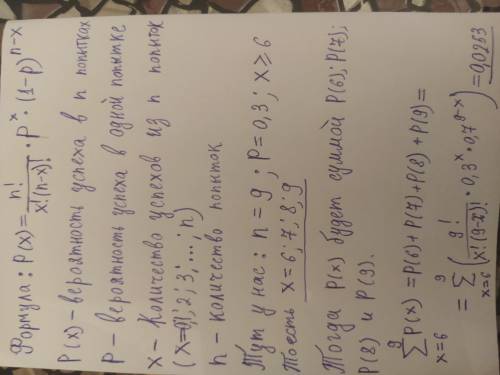 Формула: P(x) = n! / x!·(n-x)! · P^x · (1-p)^n-x
P(x) - вероятность успеха в n попытках
P - вероятность успеха в одной попытке
x - Количество успехов из n попыток
(x=0,1; 2; 3; ...; n)
n - количество попыток
Тут у нас: n=9; P=0,3; x≥6
То есть x=6; 7; 8; 9
Тогда P(x) будет суммой P(6); P(7);
P(8) и P(9).
9 ∑ x=6 P(x) = P(6)+P(7)+P(8)+P(9)=
= 9 ∑ x=6 (9! / x!·(9-x)! · 0,3^x · 0,7^9-x) = 0,0253